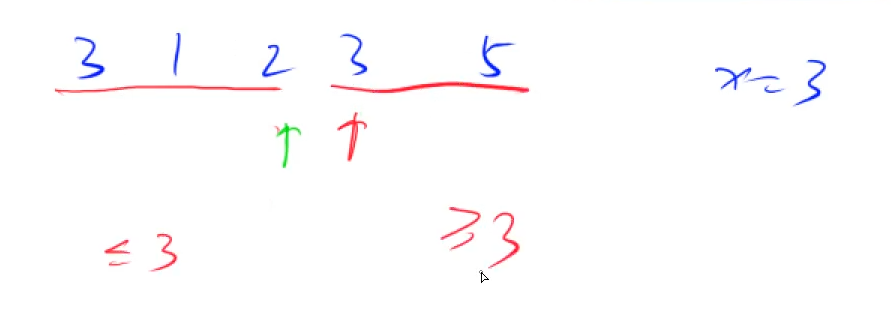 3 1 2 3 5 x=3
↑ ↑
≤3 ≥3